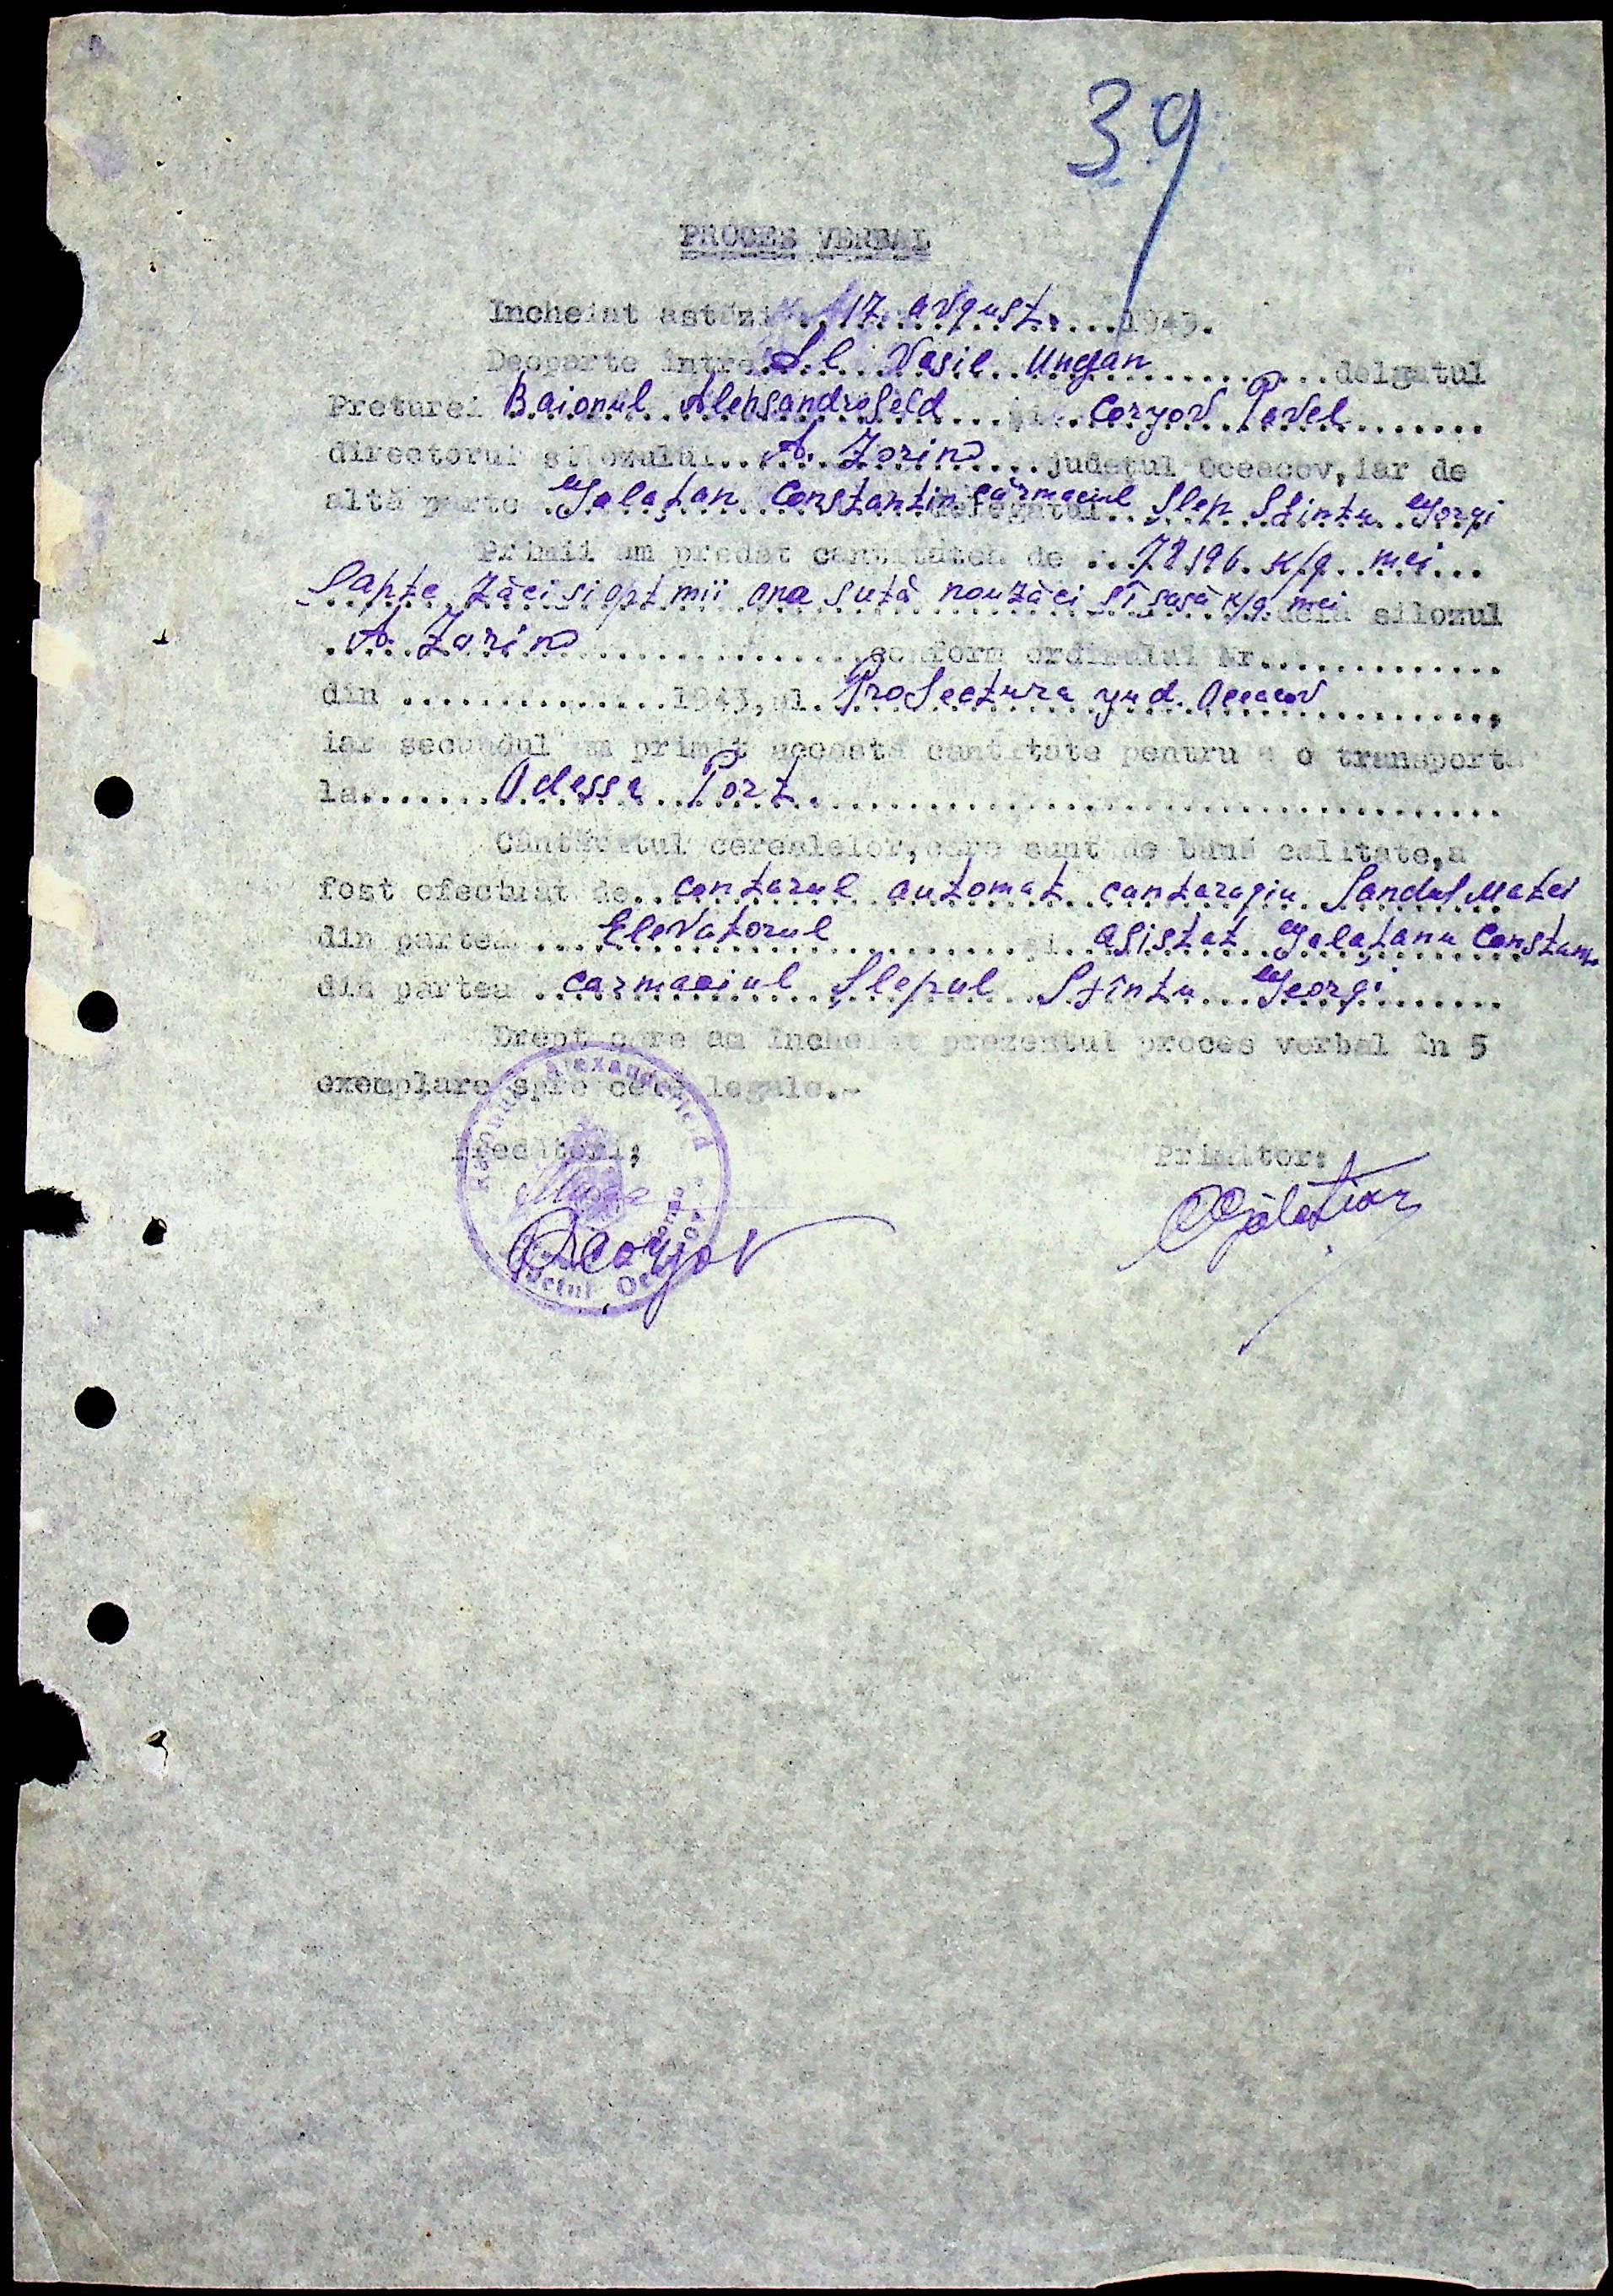 39
PROCES VERBAL
Incheiat astăzi 17 avgust. 1943.
Deoparte intre d.l Vasil Ungan delgatul
Preturei Raionul Alehsandrofeld și Coryov Pavel
directorul silozului A. Zorino județul Oceacov, iar de
altă parte Galațan Constantin cârmaciul delegatul Șlep Sfintu Gorgi
Primii am predat cantitatea de 78196 K/g mei
Sapte zăci si opt mii una sută nouzăci si sasă K/g. mei dela silozul
A. Zorino conform ordinului Nr.
din 1943, al Profectura yud. Oceacov,
iar secundul am primit această cantitate pentru a o transporta
la Odessa Port.
Cântăritul cerealelor, care sunt de bună calitate, a
fost efectuat de contarul automat cantaragiu Sandul Matei
din partea Elevatorul și asistat Galațanu Constan.
din partea carmaciul Șlepul Sfîntu Georgi
Drept care am incheiat prezentul proces verbal în 5
exemplare spre cele legale.-
Predatori; Primitor:
Coryov Gălățian